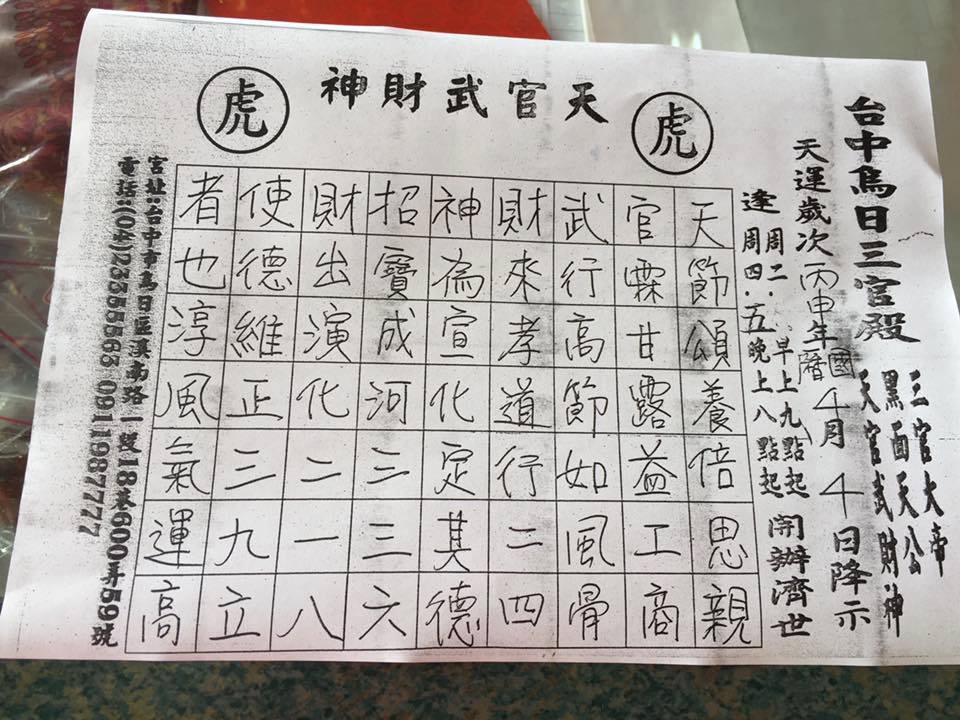 台中烏日三官殿
三官大帝
黑面天公
天官武財神
天運歲次丙申年國曆4月4日降示
逢
周二.早上九點起
周四.五晚上八點起
開辦濟世
虎
天官武財神
虎
天節頌養倍思親
官霖甘露益工商
武行高節如風骨
財來孝道行二四
神為宣化定其德
招寶成河三三六
財出演化二一八
使德維正三九立
者也淳風氣運高
宮址:台中市烏日區溪南路一段18巷600弄59號
電話:(04)23355563 0911987777